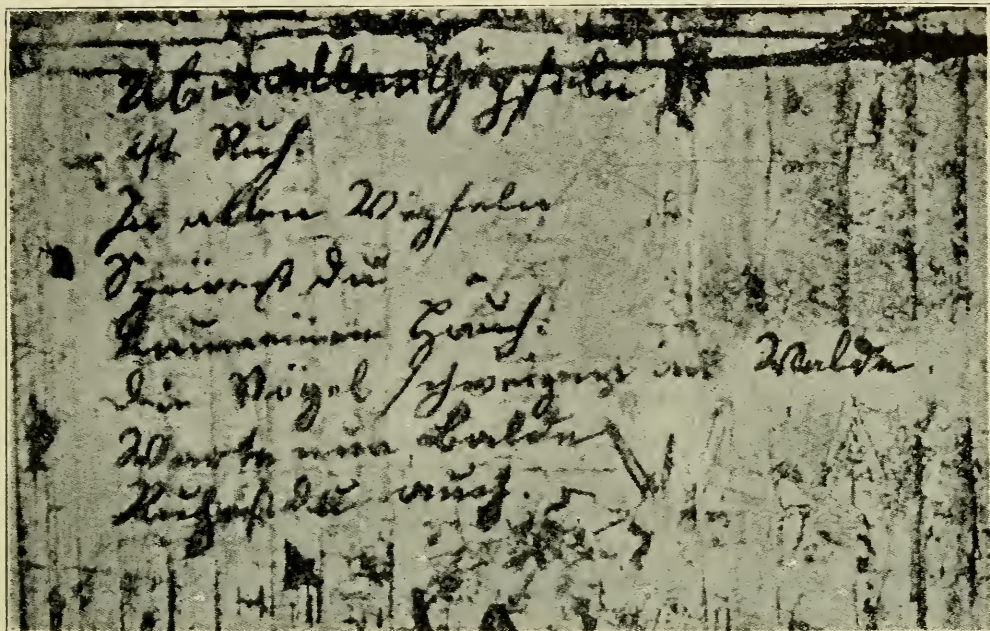 Über allen Gipfeln
ist Ruh.
In allen Wipfeln
Spürest du
Kaum einen Hauch.
Die Vögel schweigen im Walde.
Warte nur balde
Ruhest du auch.